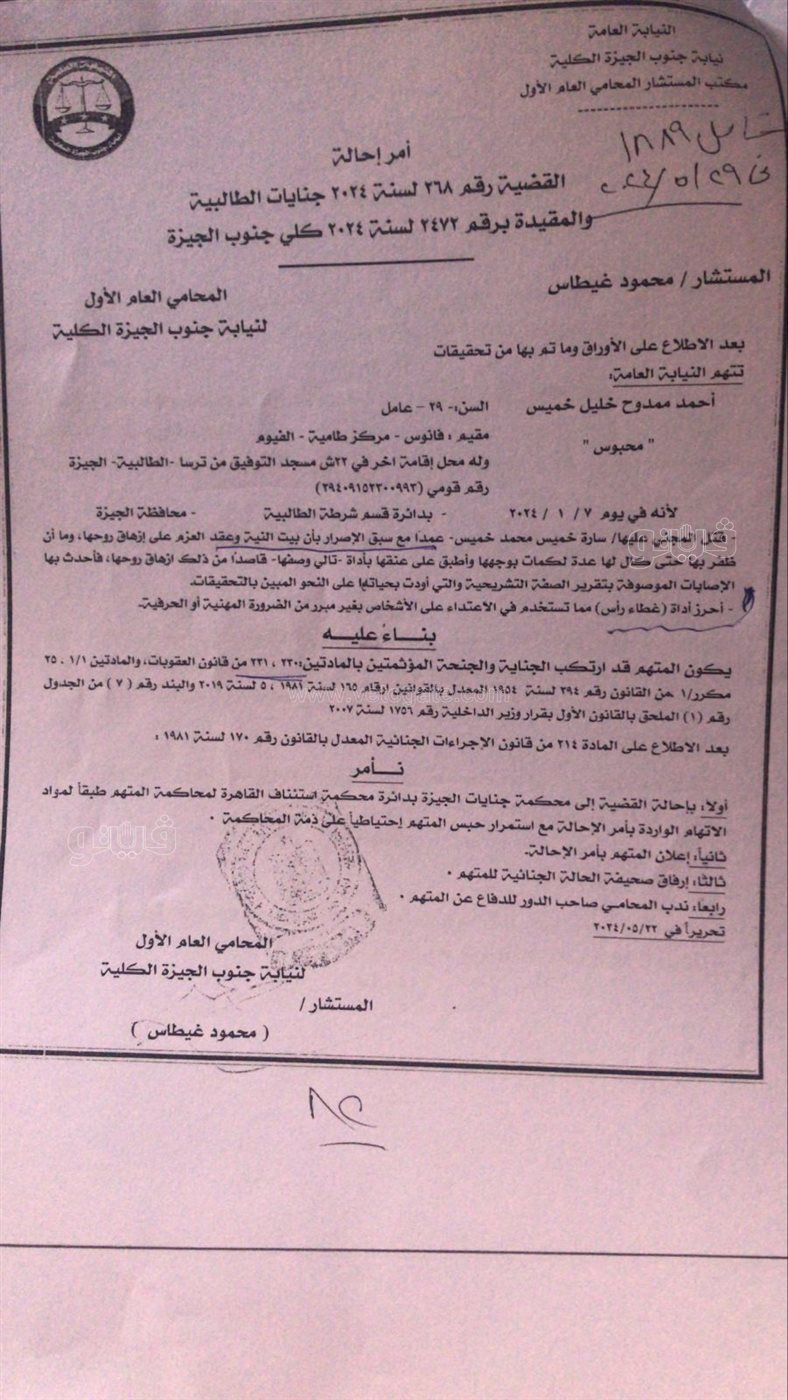 النيابة العامة
نيابة جنوب الجيزة الكلية
مكتب المستشار المحامي العام الأول
١٨٨٩
أمر إحالة
القضية رقم ٢٦٨ لسنة ٢٠٢٤ جنايات الطالبية
والمقيدة برقم ٢٤٧٢ لسنة ٢٠٢٤ كلي جنوب الجيزة
المستشار / محمود غيطاس
المحامي العام الأول
لنيابة جنوب الجيزة الكلية
بعد الاطلاع على الأوراق وما تم بها من تحقيقات
تتهم النيابة العامة:
أحمد ممدوح خليل خميس السن:- ٢٩ - عامل
" محبوس " مقيم : فانوس - مركز طامية - الفيوم
وله محل إقامة اخر في ٢٢ش مسجد التوفيق من ترسا -الطالبية- الجيزة
رقم قومي (٢٩٤٠٩١٥٢٣٠٠٩٩٣)
لأنه في يوم ٧ / ١ / ٢٠٢٤ - بدائرة قسم شرطة الطالبية - محافظة الجيزة
- قتل المجني عليها/ سارة خميس محمد خميس- عمدًا مع سبق الإصرار بأن بيت النية وعقد العزم على إزهاق روحها، وما أن
ظفر بها حتى كال لها عدة لكمات بوجهها وأطبق على عنقها بأداة -تالي وصفها- قاصدًا من ذلك ازهاق روحها، فأحدث بها
الإصابات الموصوفة بتقرير الصفة التشريحية والتي أودت بحياتها على النحو المبين بالتحقيقات.
- أحرز أداة (غطاء رأس) مما تستخدم في الاعتداء على الأشخاص بغير مبرر من الضرورة المهنية أو الحرفية.
بناءً عليه
يكون المتهم قد ارتكب الجناية والجنحة المؤثمتين بالمادتين: ٢٣٠ ، ٢٣١ من قانون العقوبات، والمادتين ١/١ ، ٢٥
مكرر/١ من القانون رقم ٣٩٤ لسنة ١٩٥٤ المعدل بالقوانين ارقام ١٦٥ لسنة ١٩٨١ ، ٥ لسنة ٢٠١٩ والبند رقم ( ٧ ) من الجدول
رقم (١) الملحق بالقانون الأول بقرار وزير الداخلية رقم ١٧٥٦ لسنة ٢٠٠٧
بعد الاطلاع على المادة ٢١٤ من قانون الإجراءات الجنائية المعدل بالقانون رقم ١٧٠ لسنة ١٩٨١ :
نــأمر
أولًا: بإحالة القضية إلى محكمة جنايات الجيزة بدائرة محكمة استئناف القاهرة لمحاكمة المتهم طبقاً لمواد
الاتهام الواردة بأمر الإحالة مع استمرار حبس المتهم إحتياطياً على ذمة المحاكمة .
ثانياً: إعلان المتهم بأمر الإحالة.
ثالثًا: إرفاق صحيفة الحالة الجنائية للمتهم .
رابعا: ندب المحامي صاحب الدور للدفاع عن المتهم .
تحريراً في ٢٠٢٤/٠٥/٢٢
المحامي العام الأول
لنيابة جنوب الجيزة الكلية
المستشار /
( محمود غيطاس )
ڤيتو
ڤيتو